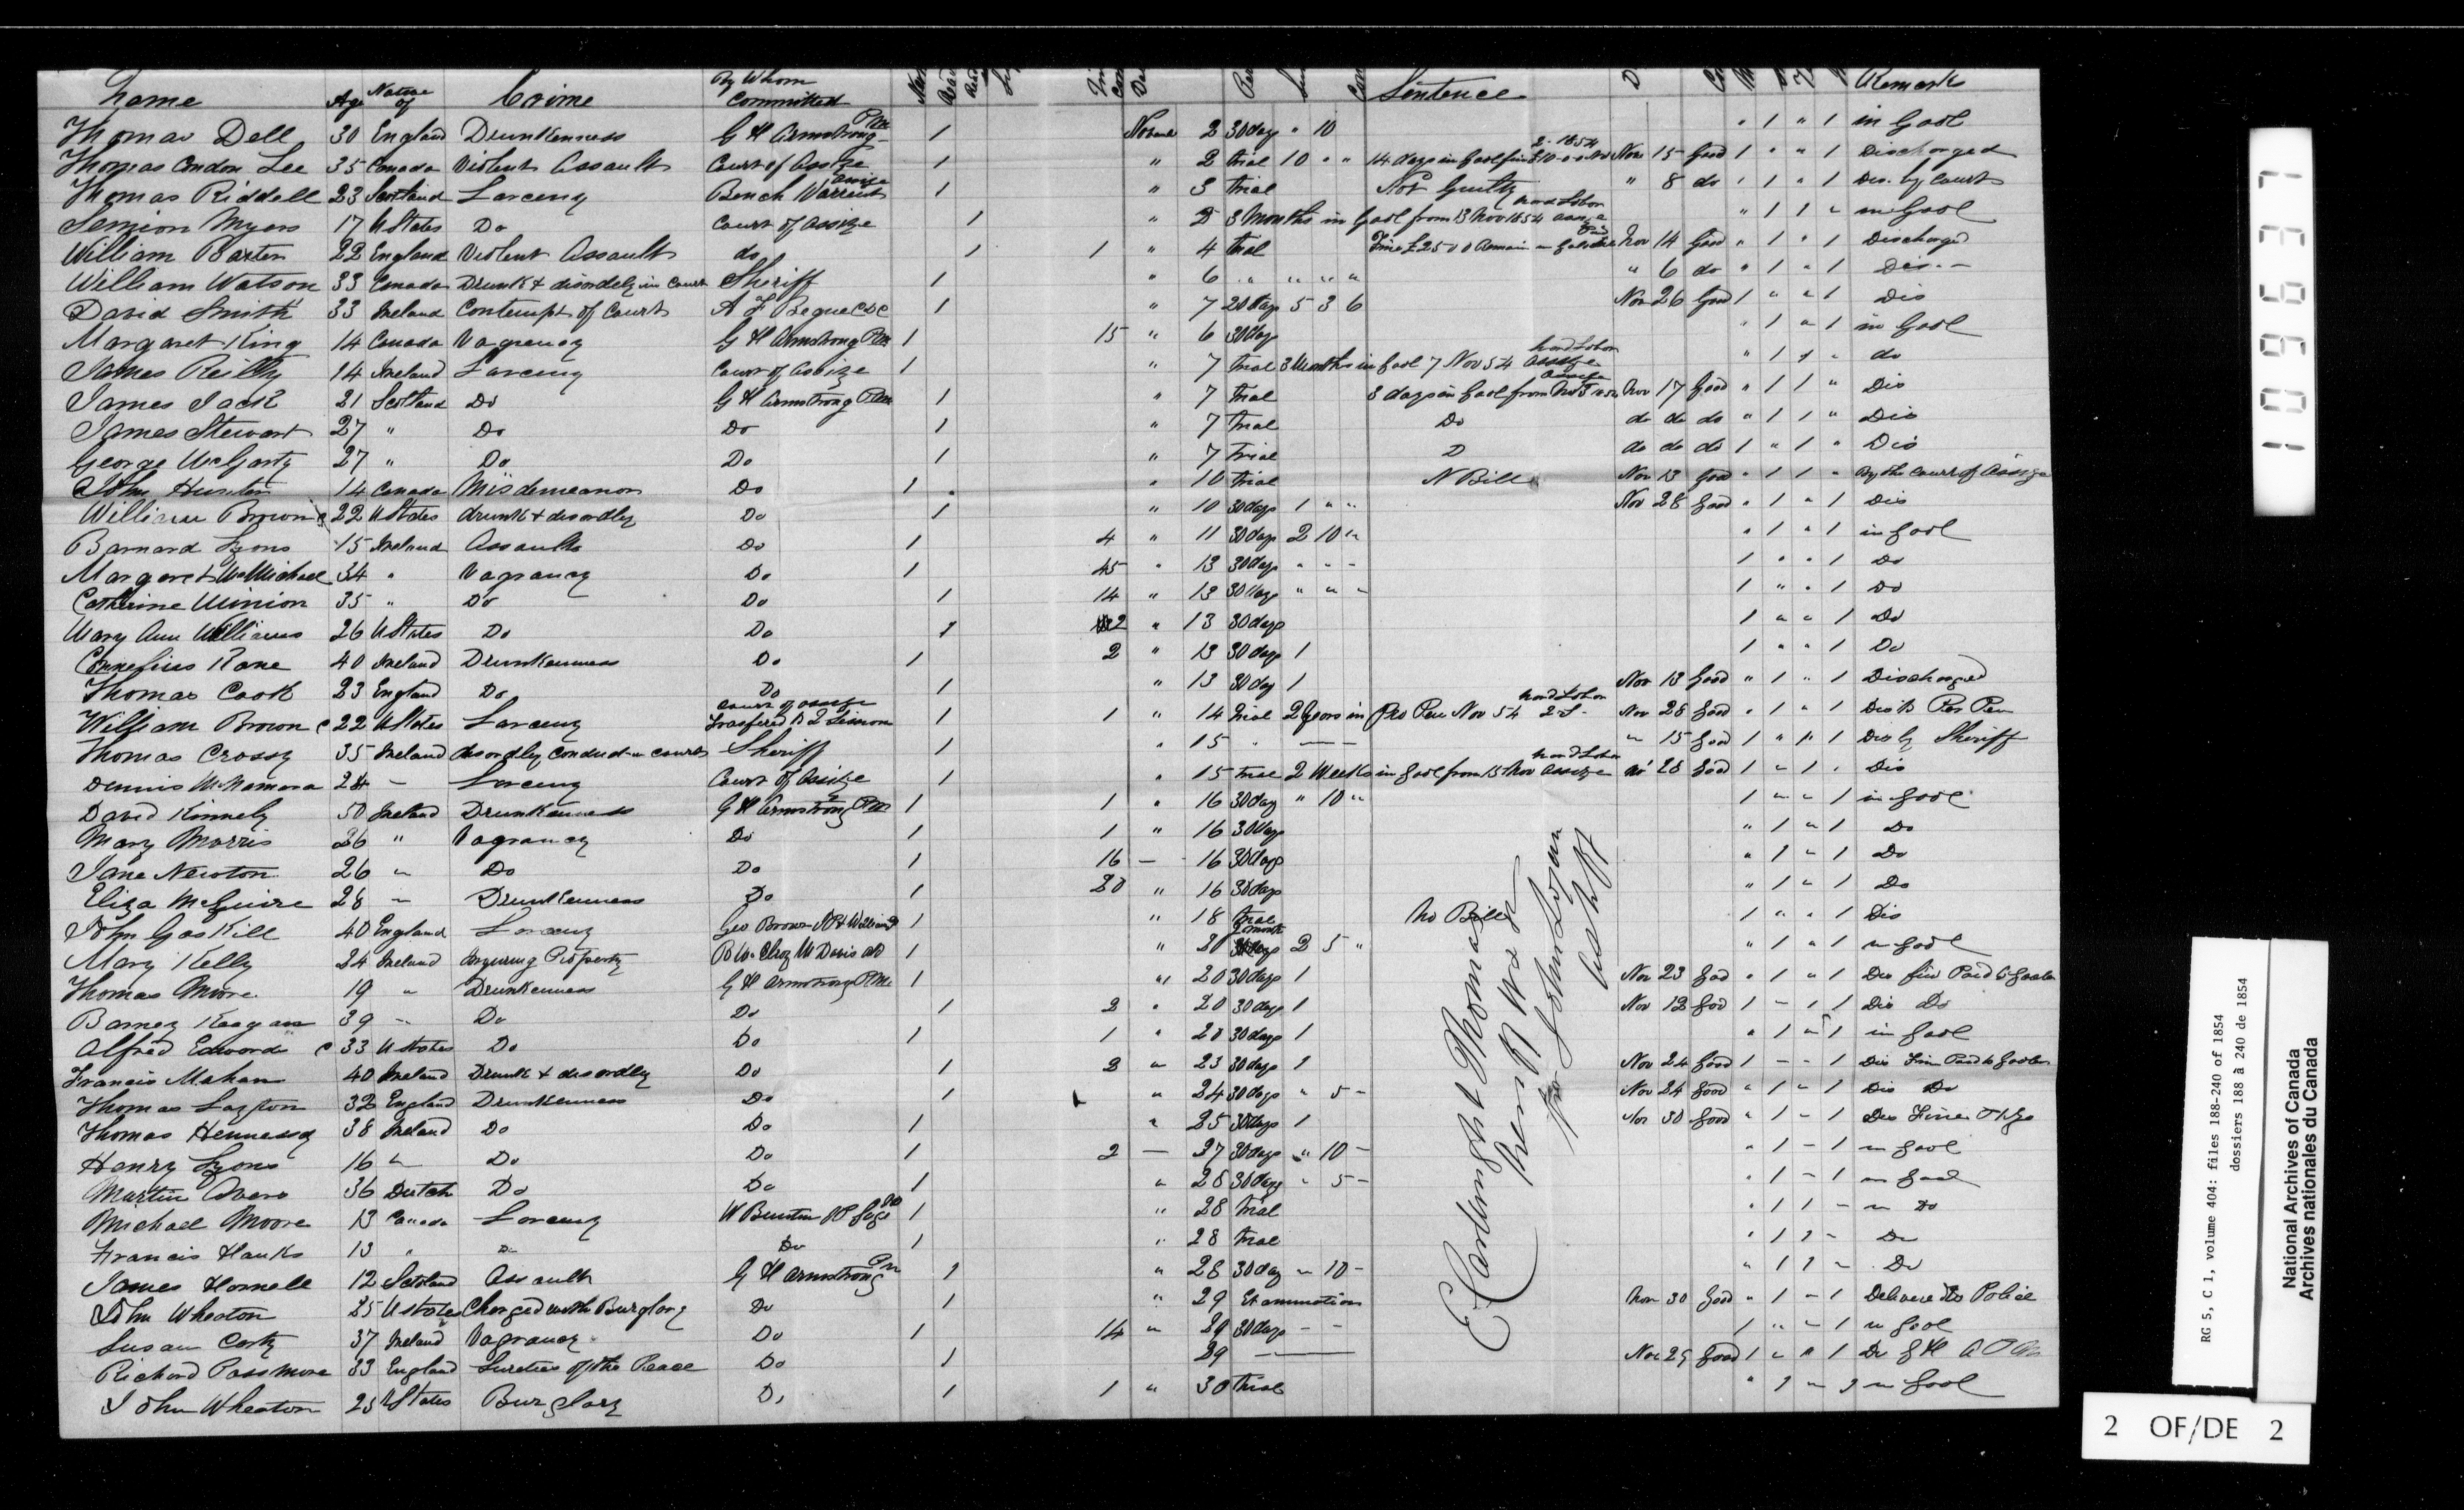 Name Age Native of Crime By Whom Committed Sentence Remarks
Thomas Dell 30 England Drunkenness G H Armstrong PM 1 Novem 2 30 days " 10 " 1 " 1 in Gaol
Thomas Condon Lee 35 Canada Violent Assault Court of Assize 1 " 2 trial 10 " " 14 days in Gaol fine £10-0-0 Nov 2. 1854 Nov 15 Good 1 " " 1 Discharged
Thomas Riddell 23 Scotland Larceny Bench Warrant Assize 1 " 3 trial Not Guilty " 8 do " 1 " 1 Dis. by Court
Simion Myers 17 U States Do Court of Assize 1 " 3 months in Gaol from 13 Nov 1854 Assize hard Labor " 1 1 " in Gaol
William Baxter 22 England Violent Assault do 1 1 " 4 trial Fine £25 0 0 Remain in Gaol Nov 14 Good " 1 " 1 Discharged
William Watson 33 Canada Drunk & disordely in Court Sheriff 1 " 6 " " " " " 6 do " 1 " 1 Dis.-
David Smith 33 Ireland Contempt of Court 1 " 7 20 days 5 3 6 Nov 26 Good 1 " " 1 Dis
Margaret King 14 Canada Vagrancy G H Armstrong PM 1 15 " 6 30 days " 1 " 1 in Gaol
James Reilly 14 Ireland Larceny Court of Assize 1 " 7 trial 3 Months in Gaol 7 Nov 54 Assize hard Labor " 1 1 " do
James Jack 21 Scotland Do G H Armstrong PM 1 " 7 trial 3 days in Gaol from Assize Nov 17 Good " 1 1 " Dis
James Stewart 27 " Do Do 1 " 7 trial Do do do do " 1 1 " Dis
George McGarty 27 " Do Do 1 " 7 trial D do do do 1 " 1 " Dis
John Hunter 14 Canada Misdemeanor Do 1 " 10 trial N Bill Nov 13 Good " 1 1 " By the Court of Assize
William Brown c 22 U States drunk & disordley Do 1 " 10 30 days 1 " " Nov 28 Good " 1 " 1 Dis
Barnard Lyons 15 Ireland Assault Do 1 4 " 11 30 days 2 10 " " 1 " 1 in Gaol
Margaret McMichael 34 " Vagrancy Do 1 45 " 13 30 days " " - 1 " " 1 Do
Catherine Minion 35 " Do Do 1 14 " 13 30 days " " - 1 " " 1 Do
Mary Ann Williams 26 U States Do Do 1 2 " 13 30 days 1 " " 1 Do
Cornelius Kane 40 Ireland Drunkenness Do 1 2 " 13 30 days 1 1 " " 1 Do
Thomas Cook 23 England Do Do 1 " 13 30 day 1 Nov 13 Good " 1 " 1 Discharged
William Brown c 22 U States Larceny Court of Assize 1 1 " 14 trial 2 years in Pro Pen Nov 54 hard Labor Nov 28 Good " 1 " 1 Dis to Pro Pen
Thomas Crossy 35 Ireland disordley Conduct in Court Sheriff 1 " 15 " — " 15 Good 1 " " 1 Dis by Sheriff
Dennis McNamara 24 - Larceny Court of Assize 1 " 15 trial 2 Weeks in Gaol from 15 Nov Assize hard Labor No 28 Good 1 " 1 " Dis
David Kinnely 50 Ireland Drunkenness G H Armstrong PM 1 1 " 16 30 day " 10 " 1 " " 1 in Gaol
Mary Morris 26 " Vagrancy Do 1 1 " 16 30 days " 1 " 1 Do
Jane Newton 26 " Do Do 1 16 - 16 30 days " 1 " 1 Do
Eliza McGuire 28 - Drunkenness Do 1 20 " 16 30 days " 1 " 1 Do
John Gaskill 40 England Larceny Geo Brown 1 " 18 trial No Bill 1 " " 1 Dis
Mary Kelly 24 Ireland Injuring Property 1 " 20 2 months 2 5 " " 1 " 1 in Gaol
Thomas Moore 19 " Drunkenness G H Armstrong PM 1 " 20 30 days 1 Nov 23 Good " 1 " 1 Dis fine Paid to Gaoler
Barney Keagan 39 " Do Do 1 2 " 20 30 days 1 Nov 12 Good 1 - 1 1 Dis Do
Alfred Edwards c 33 U States Do Do 1 1 " 20 30 days 1 " 1 " 1 in Gaol
Francis Mahan 40 Ireland Drunk & disordley Do 1 2 " 23 30 days 1 Nov 24 Good 1 - " 1 Dis Fine Paid to Gaoler
Thomas Layton 32 England Drunkenness Do 1 " 24 30 days " 5 - Nov 24 Good " 1 " 1 Dis Do
Thomas Hennessy 38 Ireland Do Do 1 " 25 30 days 1 Nov 30 Good " 1 - 1 Dis Fine
Henry Lyons 16 " Do Do 1 2 — 27 30 days " 10 - " 1 - 1 in Gaol
Martin 36 Dutch Do Do 1 " 28 30 days " 5 - " 1 - 1 in Gaol
Michael Moore 13 Canada Larceny 1 " 28 trial " 1 1 - in Do
Francis Hanks 13 " Do Do 1 " 28 trial " 1 1 - Do
James Hornell 12 Scotland Assault G H Armstrong PM 1 " 28 30 day " 10 - " 1 1 " Do
John Wheaton 25 U States Charged with Burglary Do 1 " 29 Examination Nov 30 Good " 1 - 1 Delivered to Police
Susan Carty 37 Ireland Vagrancy Do 1 14 " 29 30 days - - 1 " - 1 in Gaol
Richard Passmore 33 England Sureties of the Peace Do 1 29 — Nov 29 Good 1 " " 1
John Wheaton 25 U States Burglary Do 1 1 " 30 trial " 1 " 1 in Gaol
E Cartwright Thomas
109637
RG 5, C 1, volume 404: files 188-240 of 1854
dossiers 188 à 240 de 1854
National Archives of Canada
Archives nationales du Canada
2 OF/DE 2